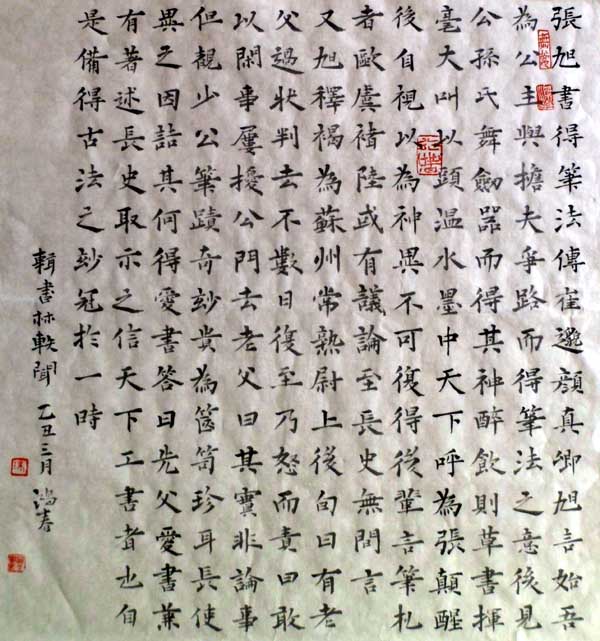 張旭書得筆法傳崔邈顏真卿旭言始吾
為公主與擔夫爭路而得筆法之意後見
公孫氏舞劍器而得其神醉飲則草書揮
毫大叫以頭溫水墨中天下呼為張顛醒
後自視以為神異不可復得後輩言筆札
者歐虞褚陸或有議論至長史無間言
又旭釋褐為蘇州常熟尉上後旬日有老
父過狀判去不數日復至乃怒而責曰敢
以閑事屢擾公門去老父曰其實非論事
但觀少公筆蹟奇玅貴為篋笥珍耳長使
異之因詰其何得愛書答曰先父愛書兼
有著述長史取示之信天下工書者也自
是備得古法之玅冠於一時
輯書林軼聞 乙丑三月